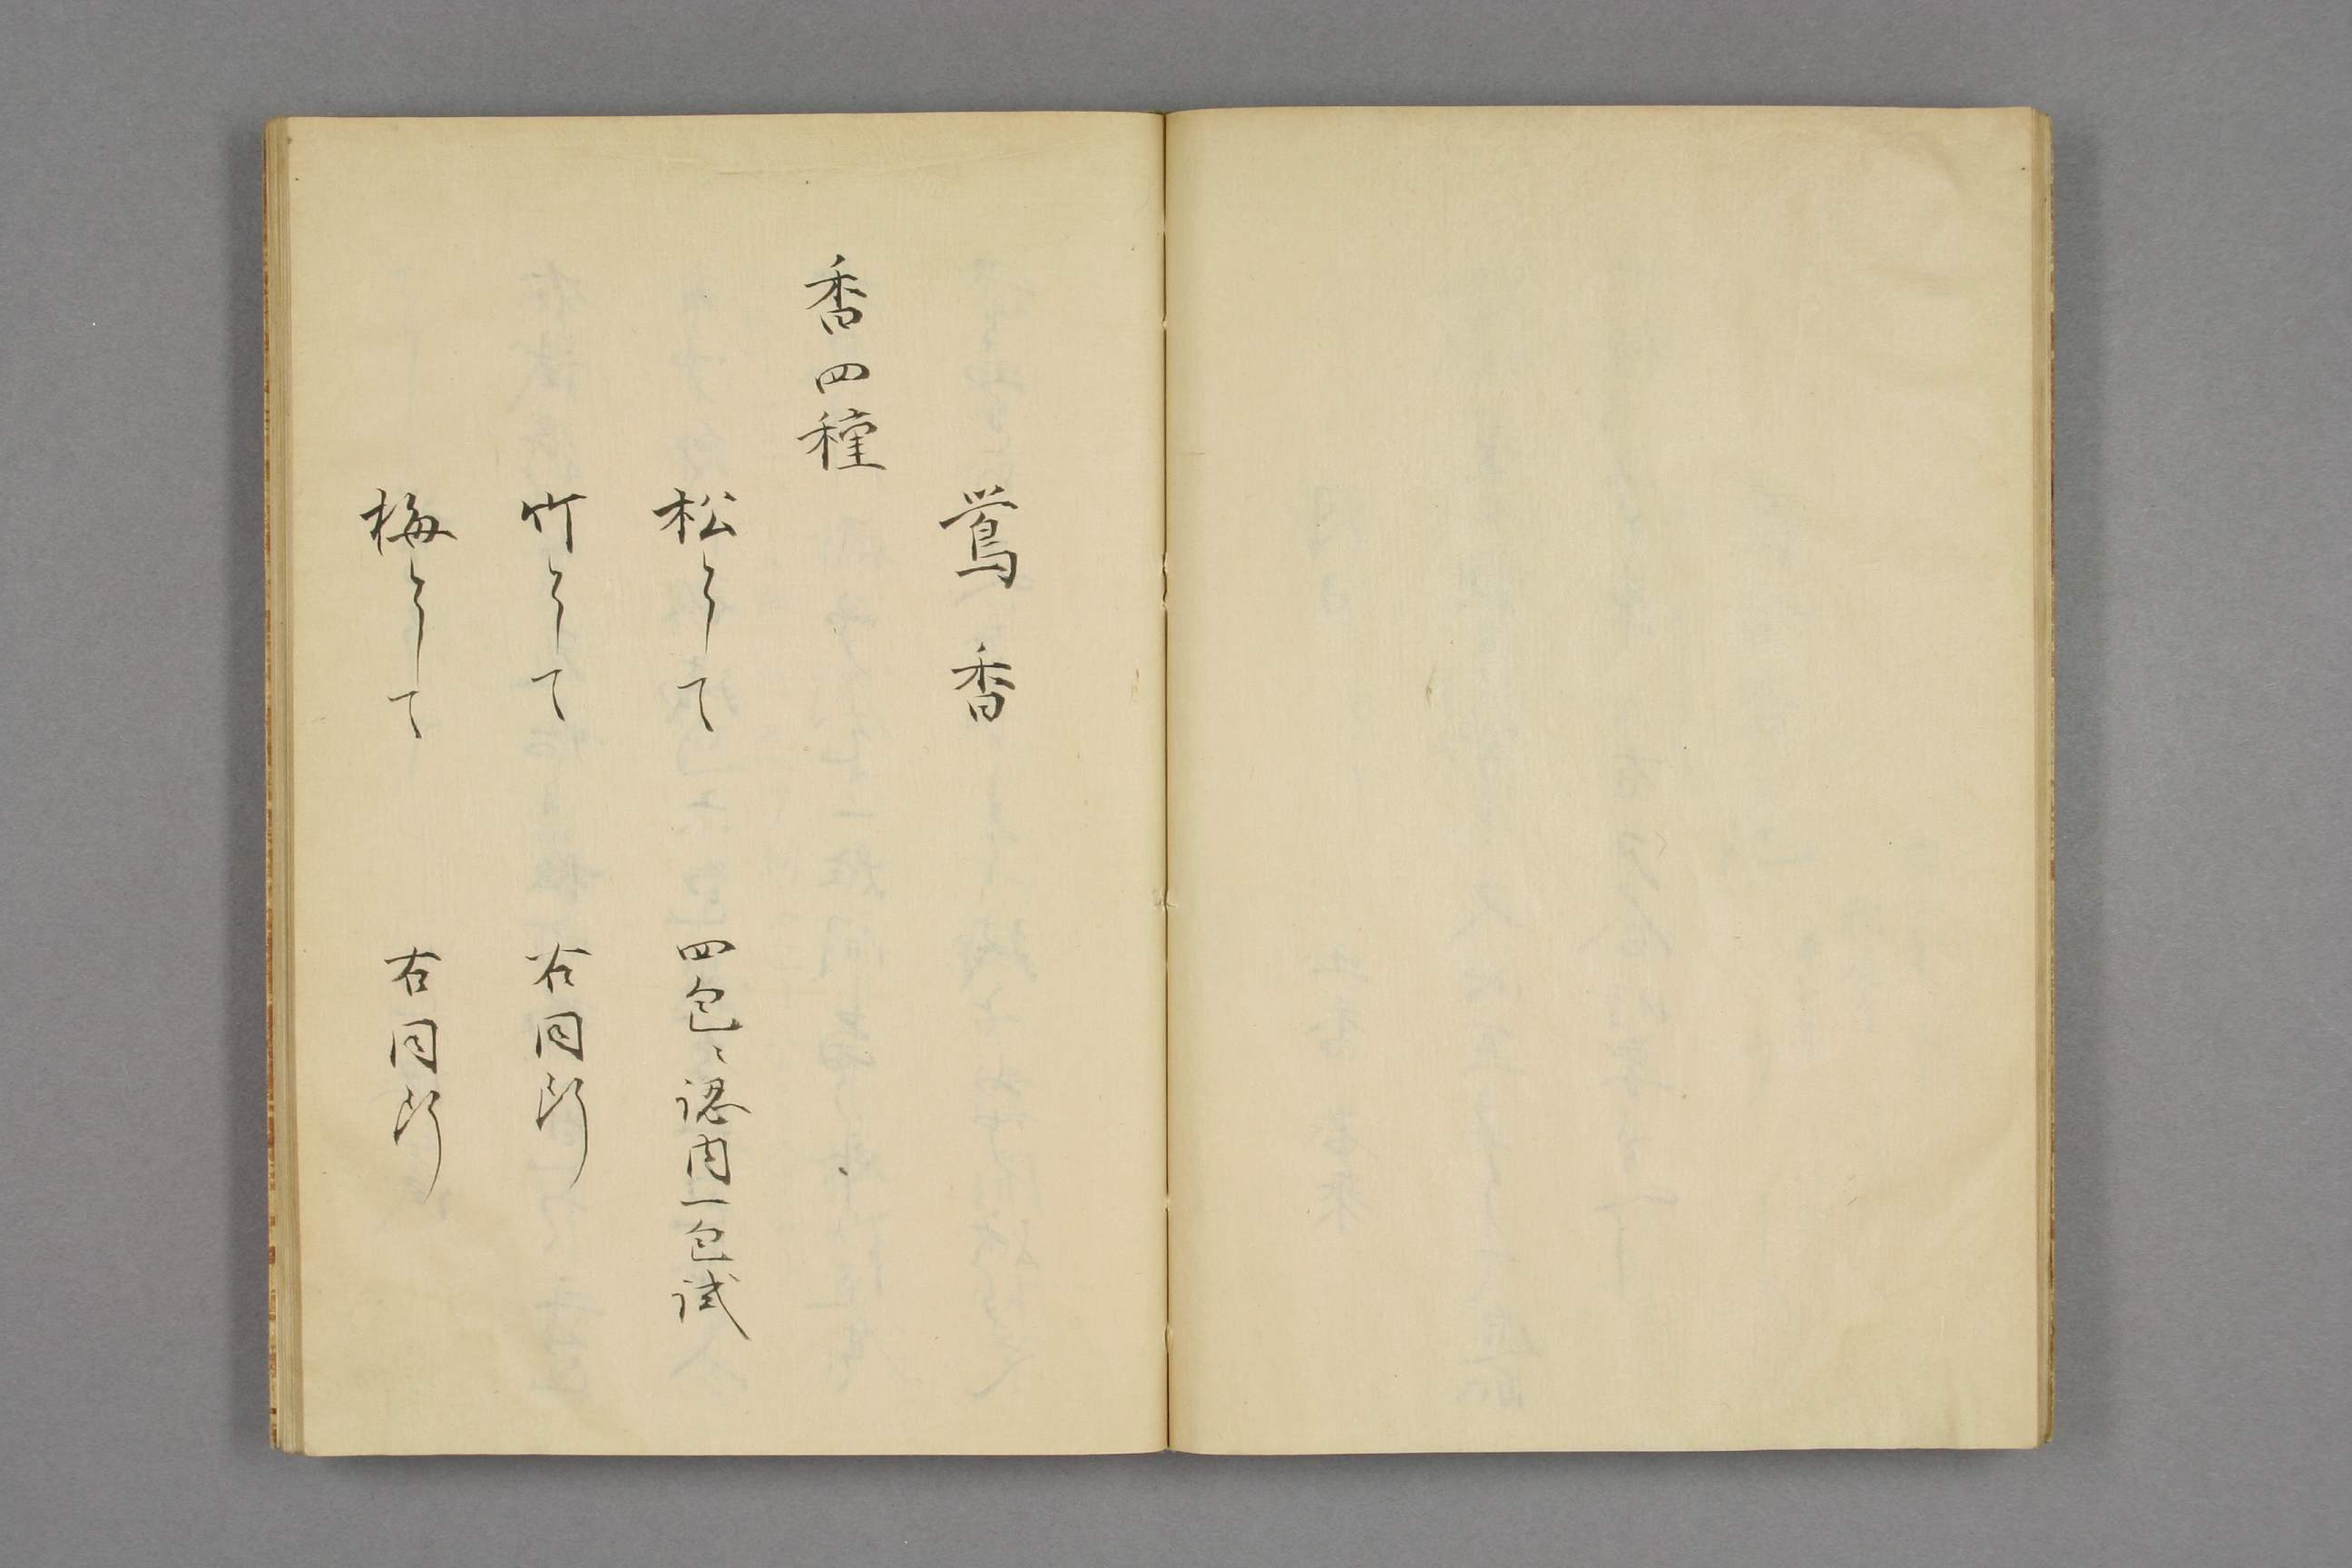 鶯香
香四種
松として 四包ニ認内一包試
竹として 右同断
梅として 右同断